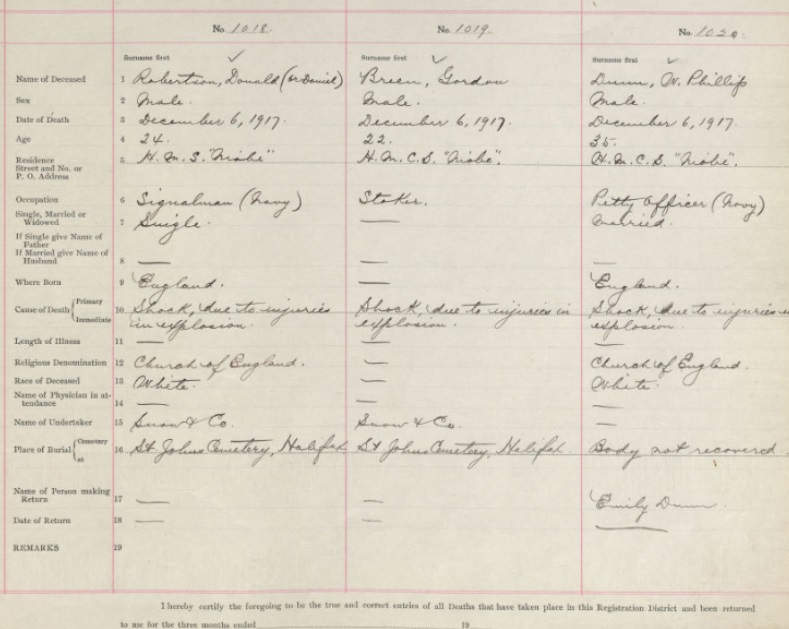 No. 1018. No. 1019. No. 1020.
Surname first Surname first Surname first
Name of Deceased 1 Robertson, Donald (or Daniel) Breen, Gordon Dunn, W. Phillip
Sex 2 Male. Male. Male.
Date of Death 3 December 6, 1917. December 6, 1917. December 6, 1917.
Age 4 24. 22. 35.
Residence
Street and No. or
P. O. Address 5 H. M. S. "Niobe" H. M. C. S. "Niobe". H. M. C. S. "Niobe".
Occupation 6 Signalman (Navy) Stoker. Petty Officer (Navy)
Single, Married or
Widowed 7 Single. — Married.
If Single give Name of
Father
If Married give Name of
Husband 8 — — —
Where Born 9 England. — England.
Cause of Death { Primary
Immediate 10 Shock, due to injuries Shock, due to injuries in Shock, due to injuries
in explosion. explosion. explosion.
Length of Illness 11 — — —
Religious Denomination 12 Church of England. — Church of England.
Race of Deceased 13 White. — White.
Name of Physician in at-
tendance 14 — — —
Name of Undertaker 15 Snow & Co. Snow & Co. —
Place of Burial { Cemetery
at 16 St Johns Cemetery, Halifax St Johns Cemetery, Halifax Body not recovered
Name of Person making
Return 17 — — Emily Dunn.
Date of Return 18 — — —
REMARKS 19
I hereby certify the foregoing to be the true and correct entries of all Deaths that have taken place in this Registration District and been returned
to me for the three months ended 19